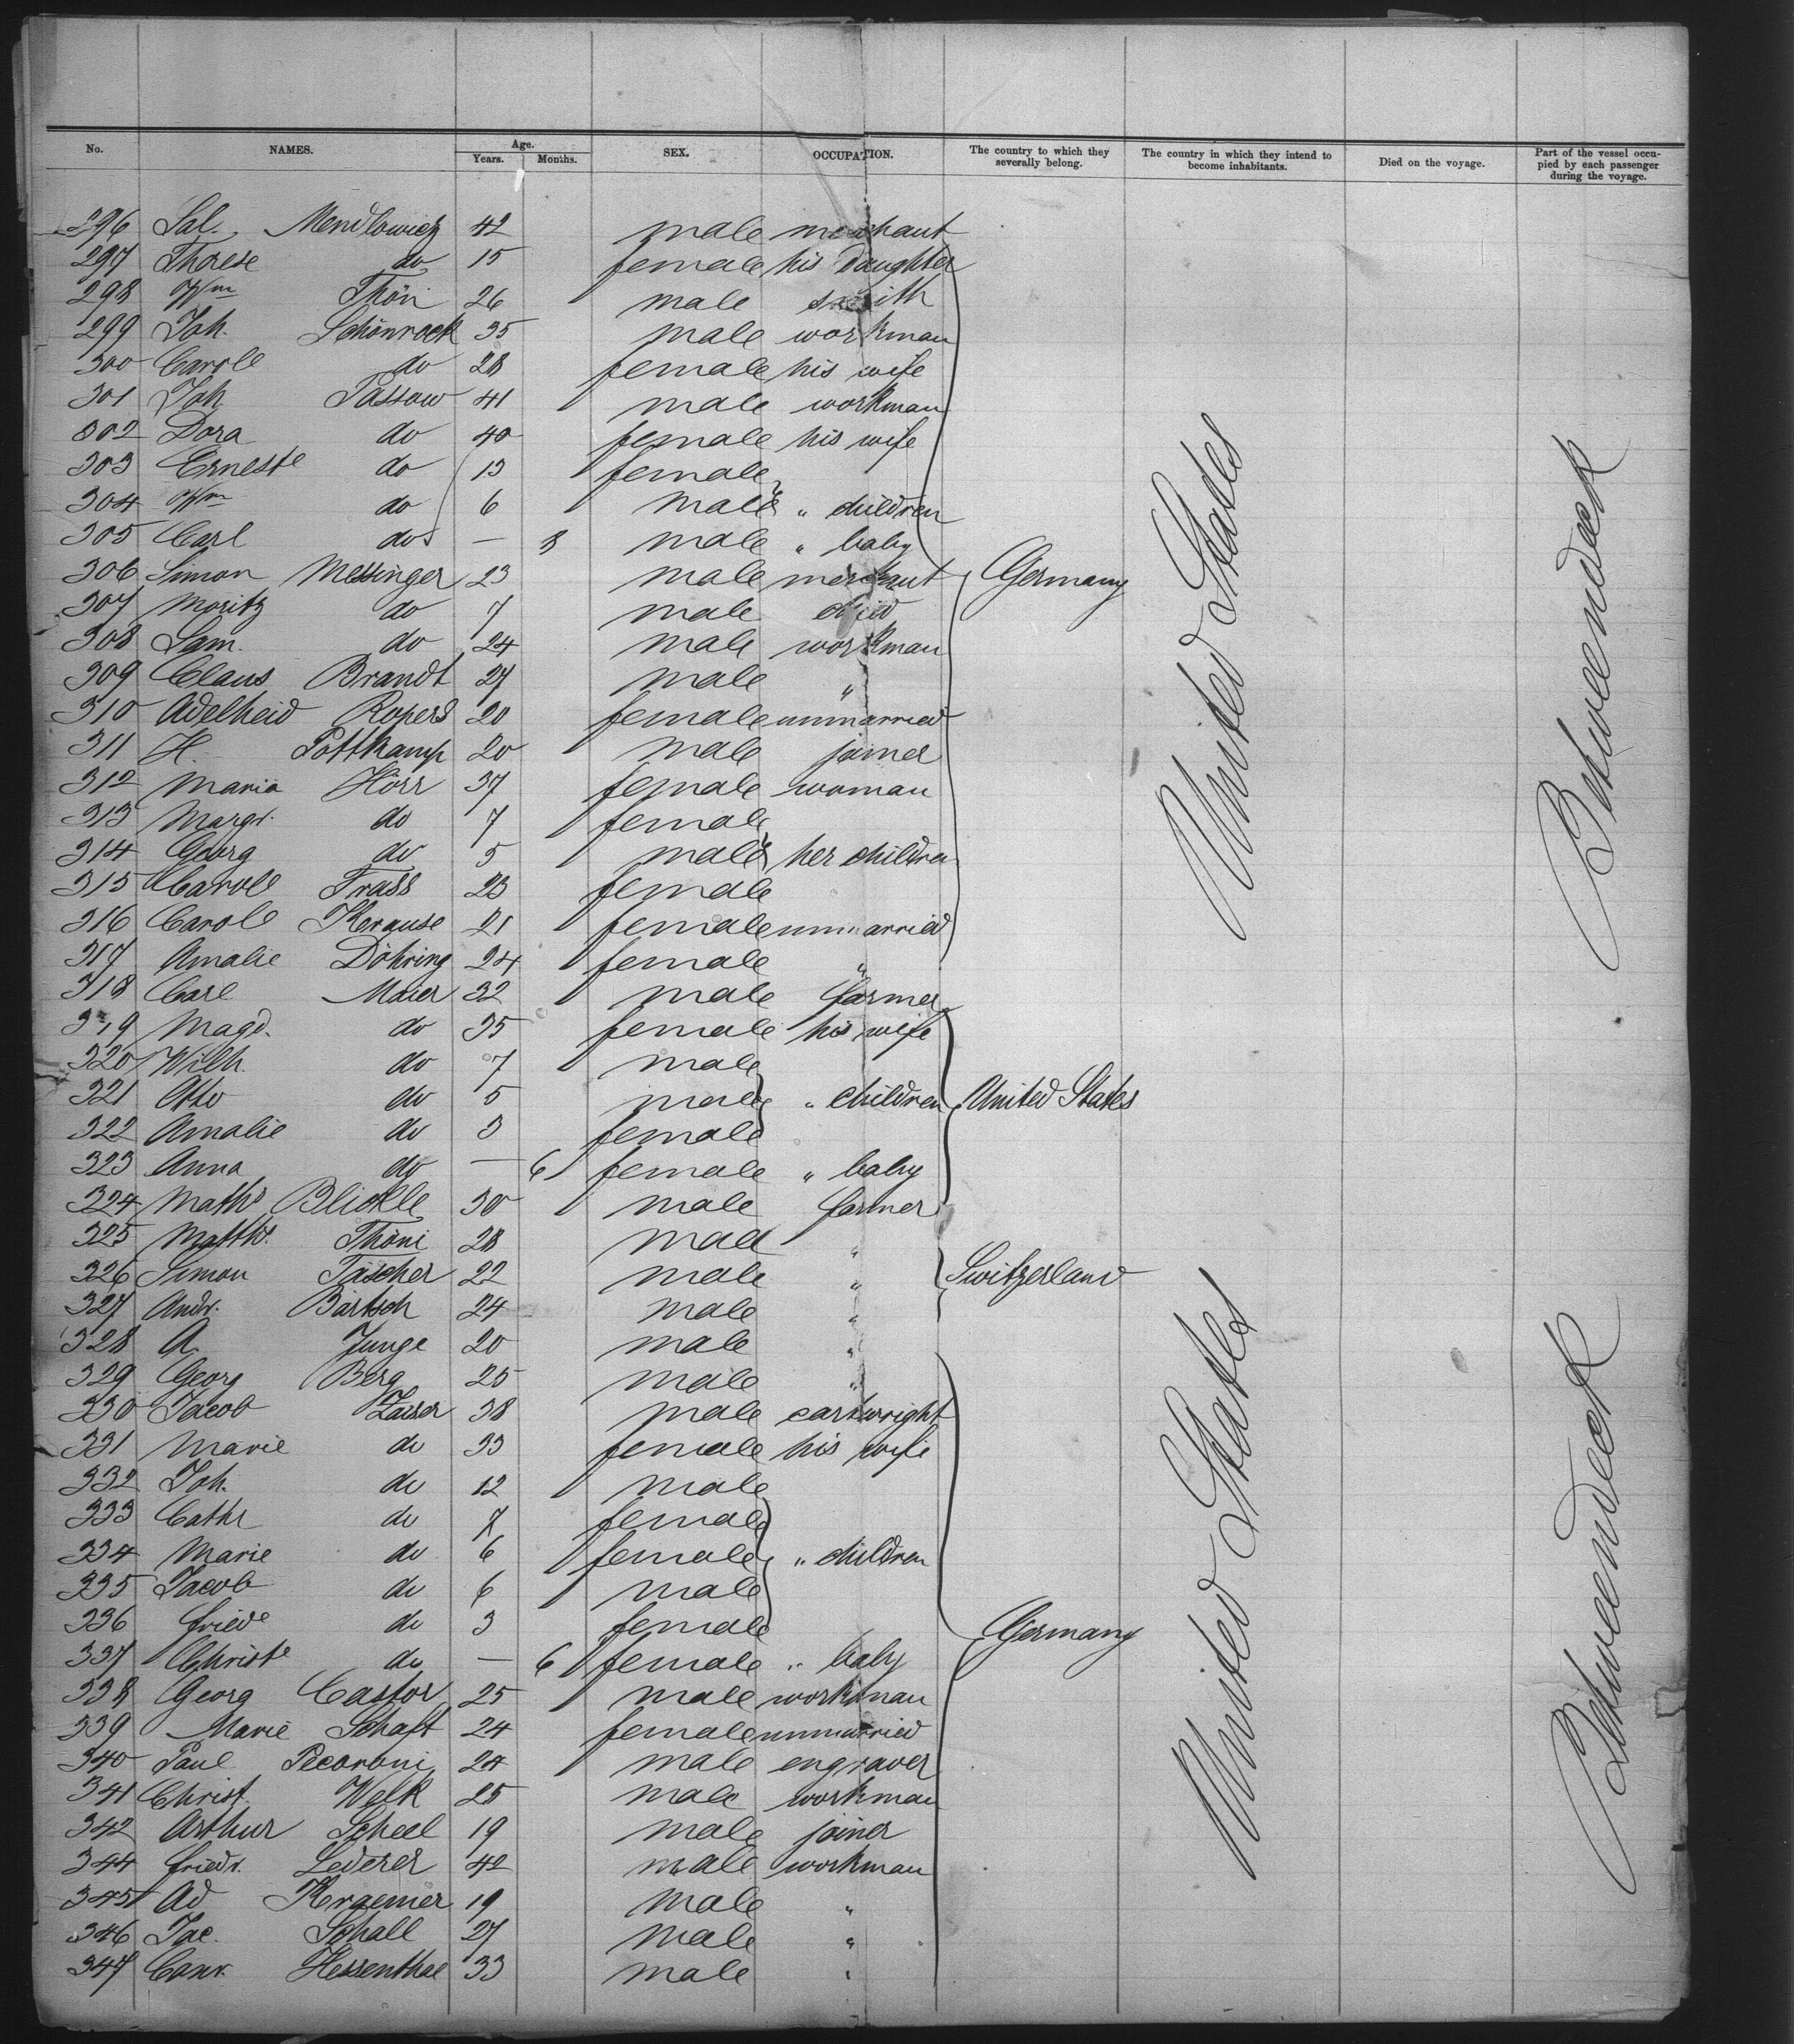 No. NAMES. Age. Years. Months. SEX. OCCUPATION. The country to which they severally belong. The country in which they intend to become inhabitants. Died on the voyage. Part of the vessel occupied by each passenger during the voyage.
296 Sal. Mendlowicz 42 male merchant
297 Therese do 15 female his daughter
298 Wm Thöni 26 male smith
299 Joh. Schönrock 35 male workman
300 Carole do 28 female his wife
301 Joh Passow 41 male workman
302 Dora do 40 female his wife
303 Erneste do 13 female
304 Wm do 6 male " children
305 Carl do — 8 male " baby
306 Simon Messinger 23 male merchant Germany
307 Moritz do 7 male child
308 Sam. do 24 male workman
309 Claus Brandt 27 male "
310 Adelheid Ropers 20 female unmarried
311 H. Pottkamp 20 male joiner
312 Maria Hörr 37 female woman
313 Margr. do 7 female
314 Georg do 5 male her children
315 Carole Frass 23 female
316 Carole Krause 21 female unmarried
317 Amalie Döhring 24 female "
318 Carl Maier 32 male farmer
319 Magd. do 35 female his wife
320 Wilh. do 7 male
321 Otto do 5 male " children United States
322 Amalie do 3 female
323 Anna do — 6 female " baby
324 Maths Blickle 30 male farmer
325 Matths. Thöni 28 male "
326 Simon Täscher 22 male " Switzerland
327 Andr. Bärtsch 24 male "
328 A. Junge 20 male "
329 Georg Berg 25 male "
330 Jacob Zaiser 38 male cartwright
331 Marie do 33 female his wife
332 Joh. do 12 male
333 Cathr do 7 female
334 Marie do 6 female " children
335 Jacob do 6 male
336 Friede do 3 female Germany
337 Christe do — 6 female " baby
338 Georg Castor 25 male workman
339 Marie Schaft 24 female unmarried
340 Paul Pecoroni 24 male engraver
341 Christ. Walk 25 male workman
342 Arthur Scheel 19 male joiner
344 Friedr. Lederer 42 male workman
345 Ad Kraemer 19 male "
346 Jac. Schall 27 male "
347 Conr. Hessenthal 33 male "
United States
Betweendeck
United States
Betweendeck